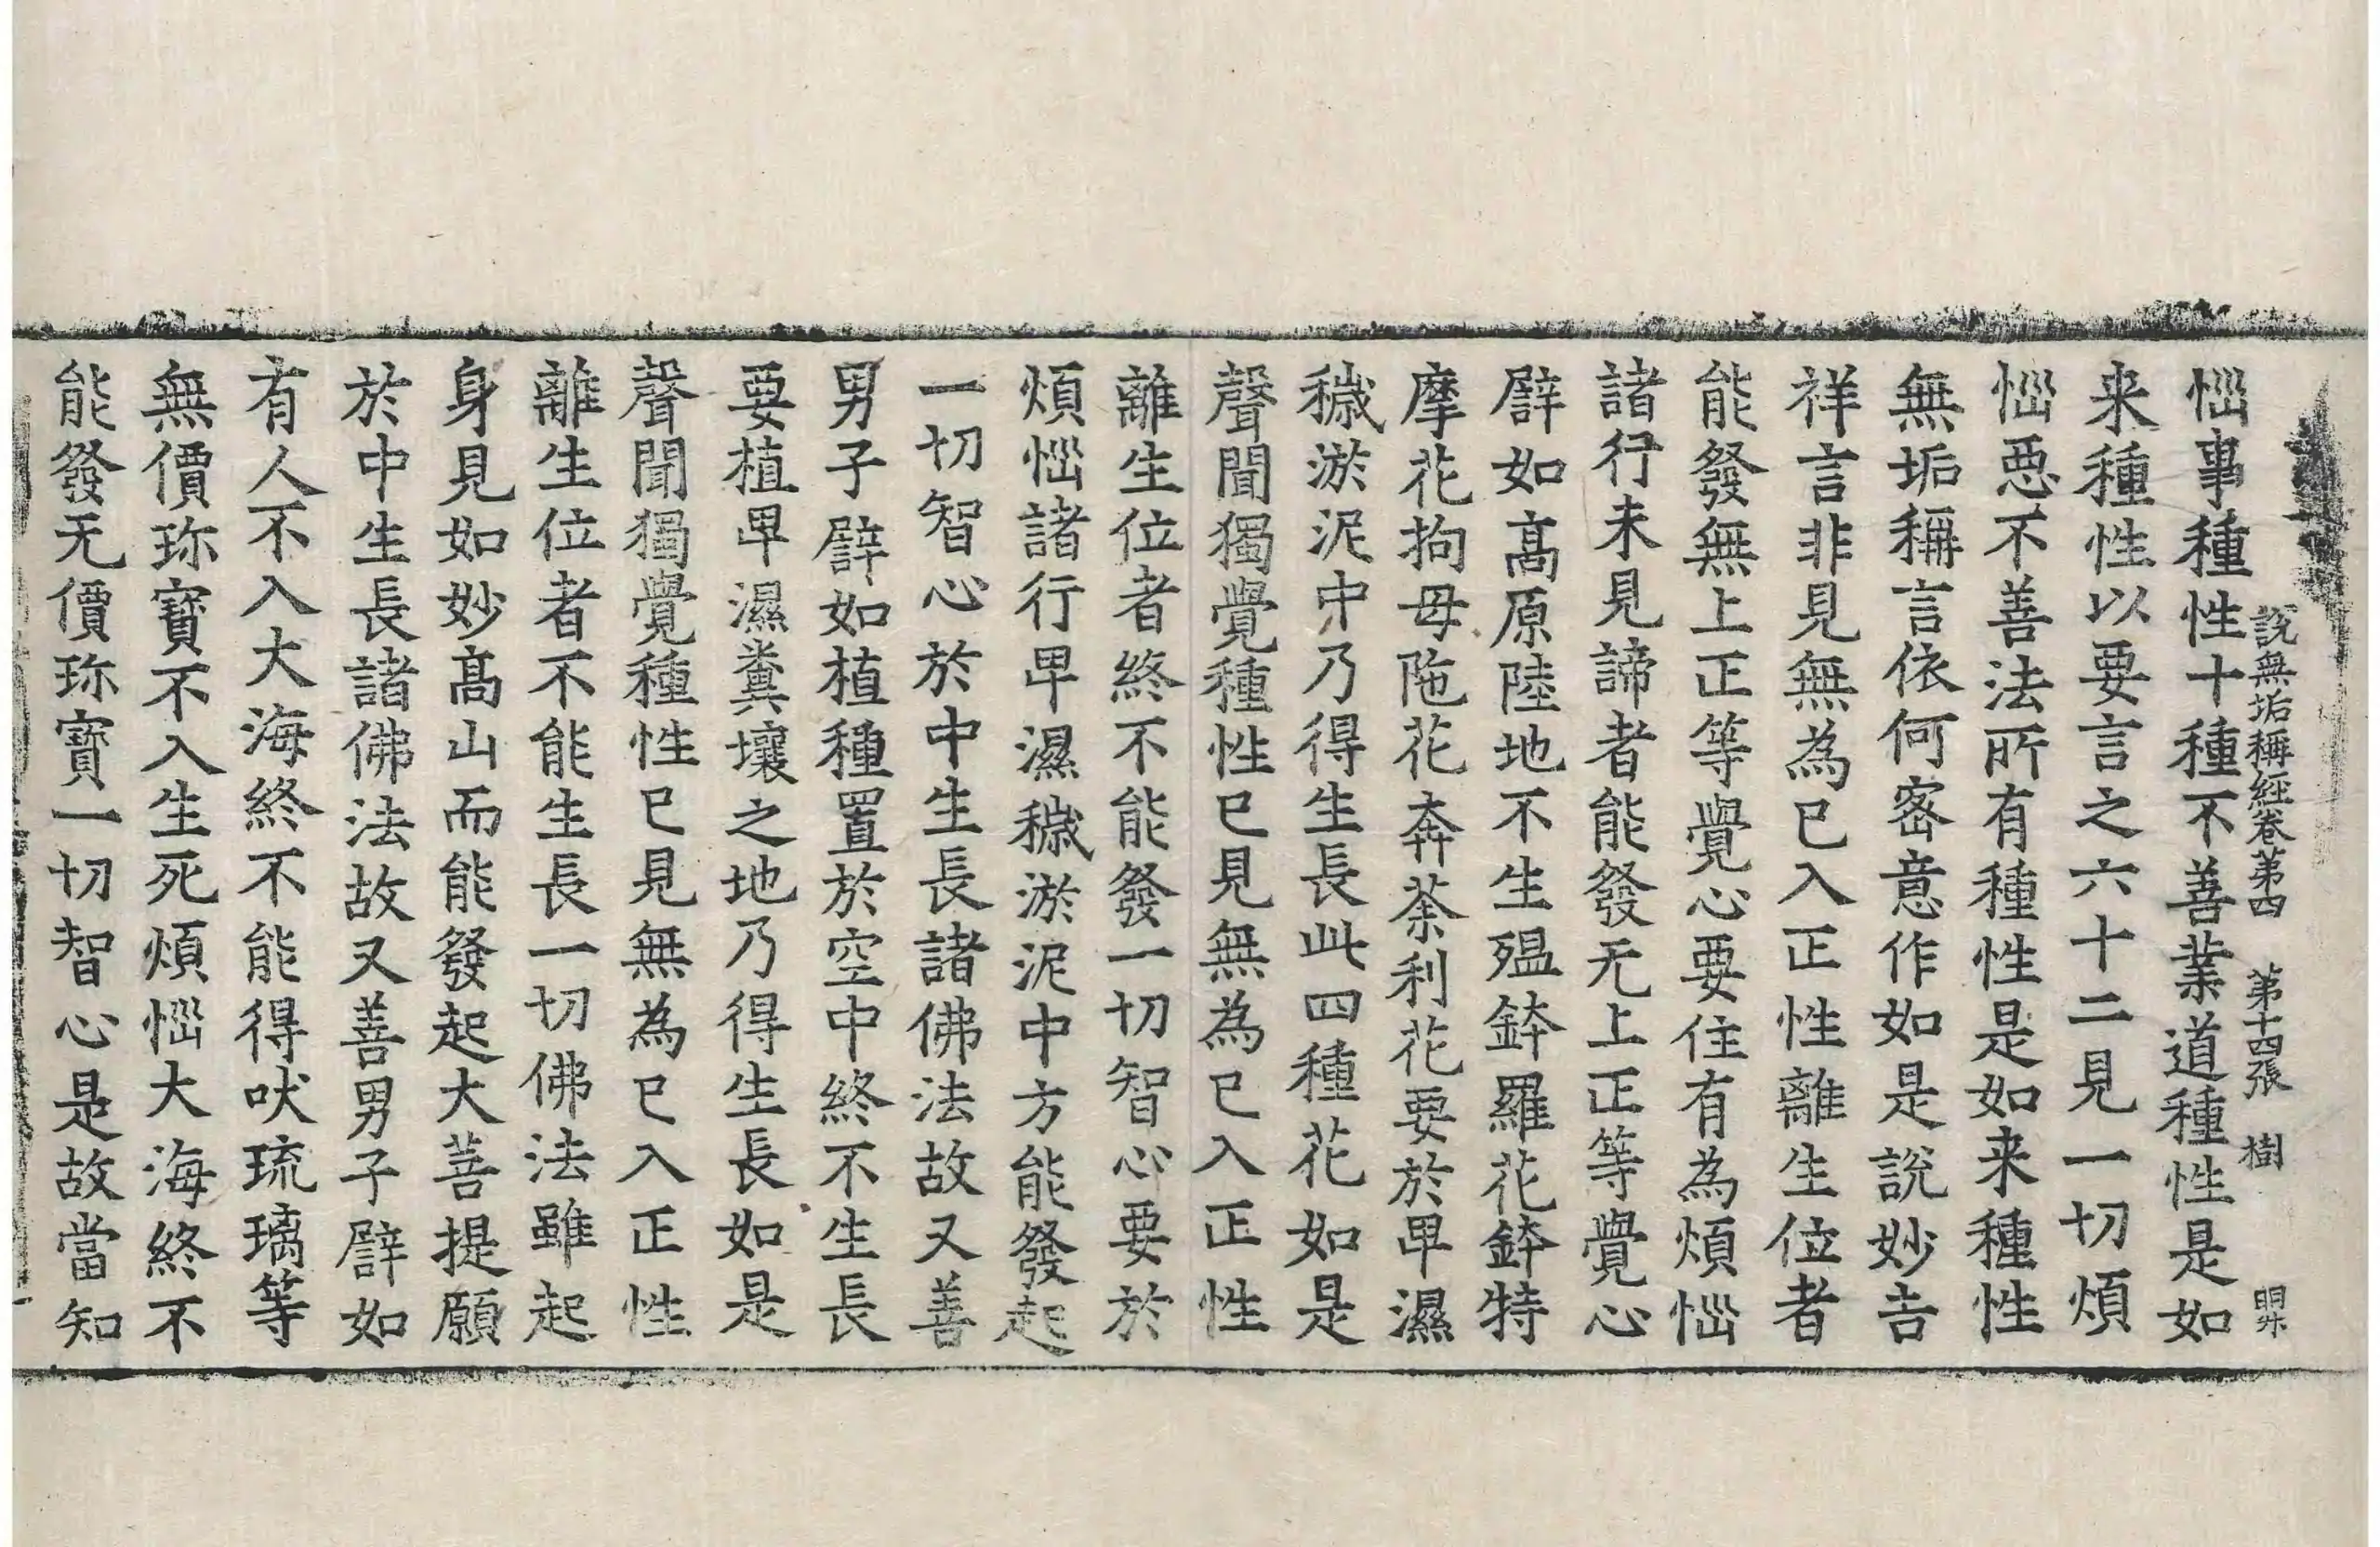 說無垢稱經卷第四 第十四張 樹 明升
惱事種性十種不善業道種性是如
来種性以要言之六十二見一切煩
惱惡不善法所有種性是如来種性
無垢稱言依何密意作如是說妙吉
祥言非見無為已入正性離生位者
能發無上正等覺心要住有為煩惱
諸行未見諦者能發无上正等覺心
譬如高原陸地不生殟鉢羅花鉢特
摩花拘母陁花奔荼利花要於卑濕
穢淤泥中乃得生長此四種花如是
聲聞獨覺種性已見無為已入正性
離生位者終不能發一切智心要於
煩惱諸行卑濕穢淤泥中方能發起
一切智心於中生長諸佛法故又善
男子譬如植種置於空中終不生長
要植卑濕糞壤之地乃得生長如是
聲聞獨覺種性已見無為已入正性
離生位者不能生長一切佛法雖起
身見如妙高山而能發起大菩提願
於中生長諸佛法故又善男子譬如
有人不入大海終不能得吠琉璃等
無價珎寶不入生死煩惱大海終不
能發无價珎寶一切智心是故當知